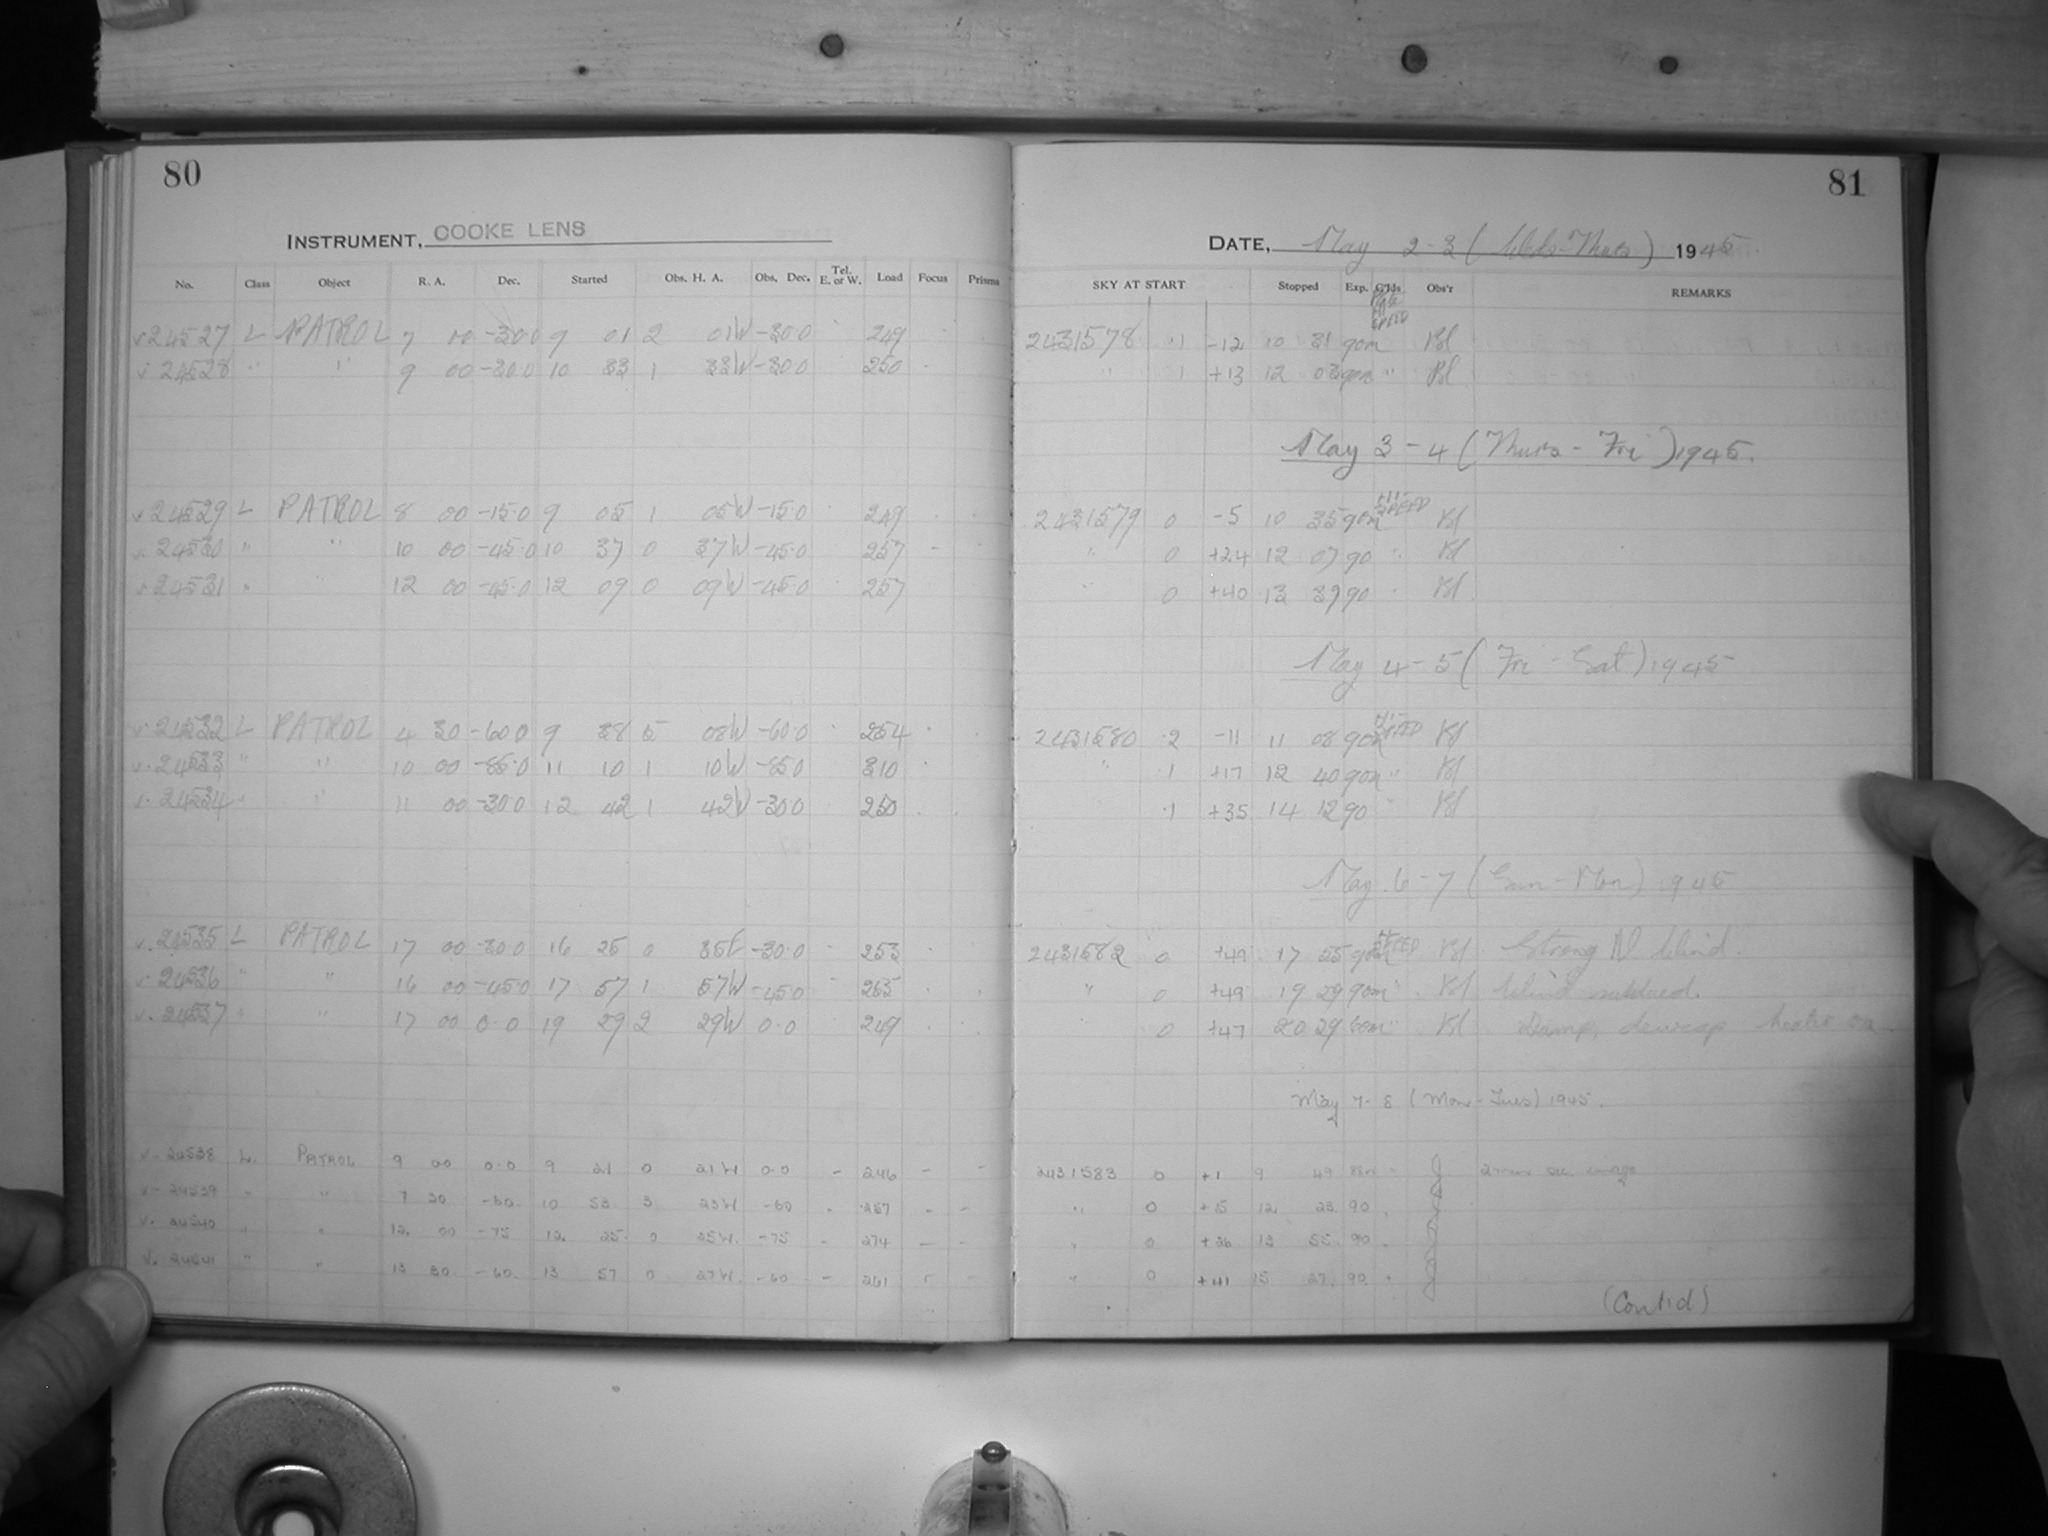 80
INSTRUMENT, COOKE LENS
No. Class Object R. A. Dec. Started Obs. H. A. Obs. Dec. Tel. E. or W. Load Focus Prisms
v 24527 L PATROL 7 00 -30.0 9 01 2 01W -30.0 249
v 24528 " " 9 00 -30.0 10 33 1 33W -30.0 250
v 24529 L PATROL 8 00 -15.0 9 05 1 05W -15.0 249
v 24530 " " 10 00 -45.0 10 37 0 37W -45.0 257
v 24531 " " 12 00 -45.0 12 09 0 09W -45.0 257
v 24532 L PATROL 4 30 -60.0 9 38 5 08W -60.0 254
v 24533 " " 10 00 -85.0 11 10 1 10W -85.0 310
v 24534 " " 11 00 -30.0 12 42 1 42W -30.0 250
v 24535 L PATROL 17 00 -30.0 16 25 0 35E -30.0 253
v 24536 " " 16 00 -45.0 17 57 1 57W -45.0 255
v 24537 " " 17 00 0.0 19 29 2 29W 0.0 249
v 24538 L. PATROL 9 00 0.0 9 21 0 21W 0.0 - 246 - -
v 24539 " " 7 30 -60. 10 53 3 23W -60 - 257 - -
v 24540 " " 12. 00 -75 12. 25 0 25W. -75 - 274 - -
v. 24541 " " 13 30 -60. 13 57 0 27W. -60 - 261 - -
81
DATE, May 2-3 (Weds-Thurs) 1945.
SKY AT START Stopped Exp. G'lds Obs'r REMARKS
2431578 .1 -12 10 31 90m SPEED Bl
" .1 +13 12 03 90m " Bl
May 3-4 (Thurs - Fri) 1945.
2431579 0 -5 10 35 90m SPEED Bl
" 0 +24 12 07 90 " Bl
" 0 +40 13 39 90 " Bl
May 4-5 (Fri - Sat) 1945
2431580 .2 -11 11 08 90m SPEED Bl
" .1 +17 12 40 90m " Bl
.1 +35 14 12 90 " Bl
May 6-7 (Sun-Mon) 1945
2431582 0 +49 17 55 90m SPEED Bl Strong N Wind.
" 0 +49 19 29 90m " Bl Wind subsided.
0 +47 20 29 60m " Bl Damp, dewcap heater on.
May 7-8 (Mon-Tues) 1945.
2431583 0 +1 9 49
" 0 +15 12 23 90
" 0 +36 13 55 90
" 0 +41 15 27 90
(Cont'd)